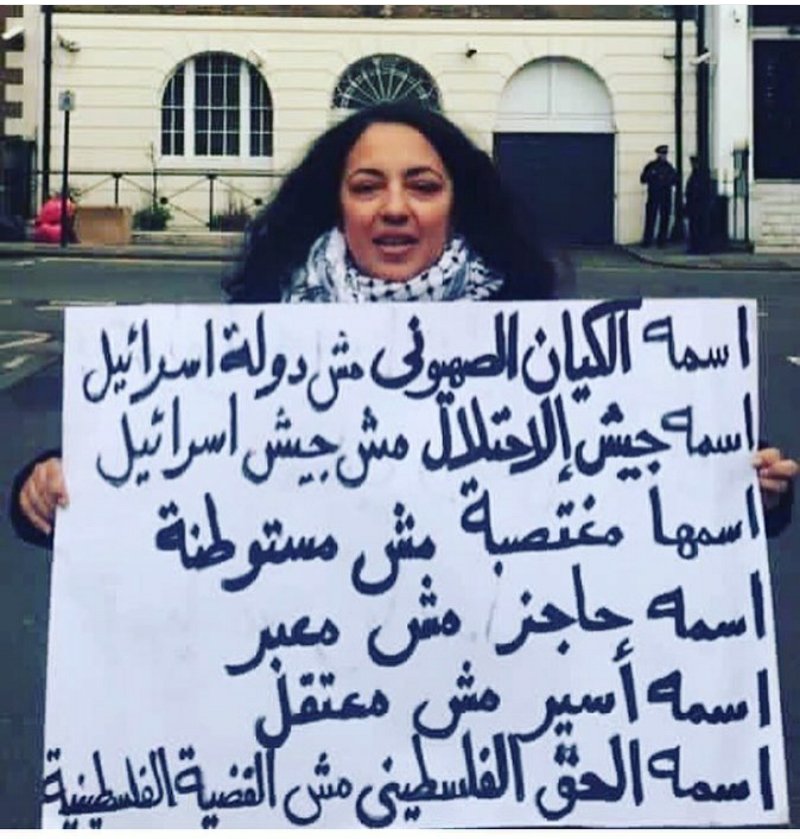 اسمه الكيان الصهيوني مش دولة اسرائيل
اسمه جيش الإحتلال مش جيش اسرائيل
اسمها مغتصبة مش مستوطنة
اسمه حاجز مش معبر
اسمه أسير مش معتقل
اسمه الحق الفلسطيني مش القضية الفلسطينية